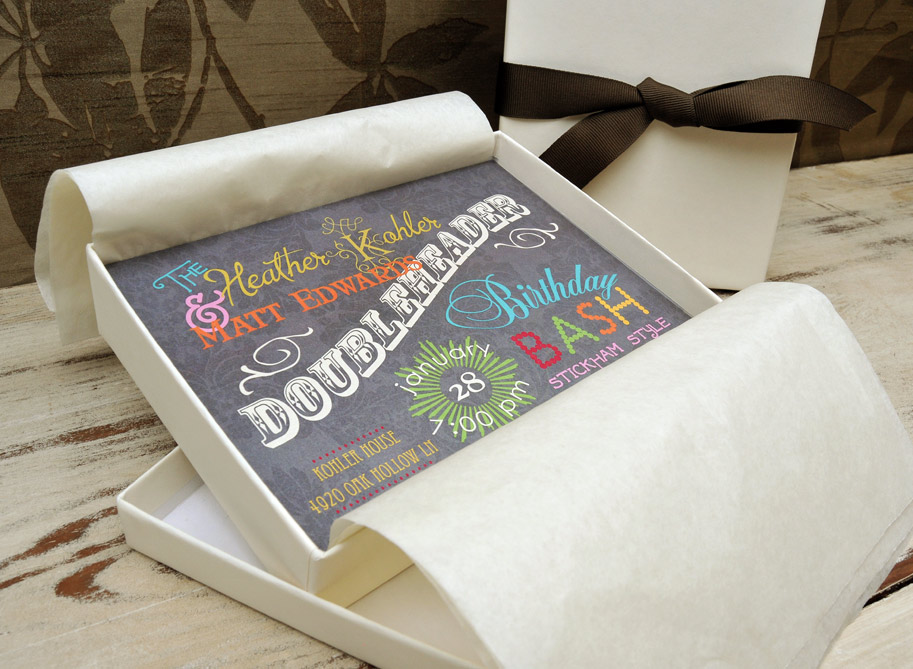 THE Heather Kohler
& MATT EDWARDS
DOUBLEHEADER
Birthday
BASH
STICKHAM STYLE
january
28
7:00 pm
KOHLER HOUSE
4920 OAK HOLLOW LN